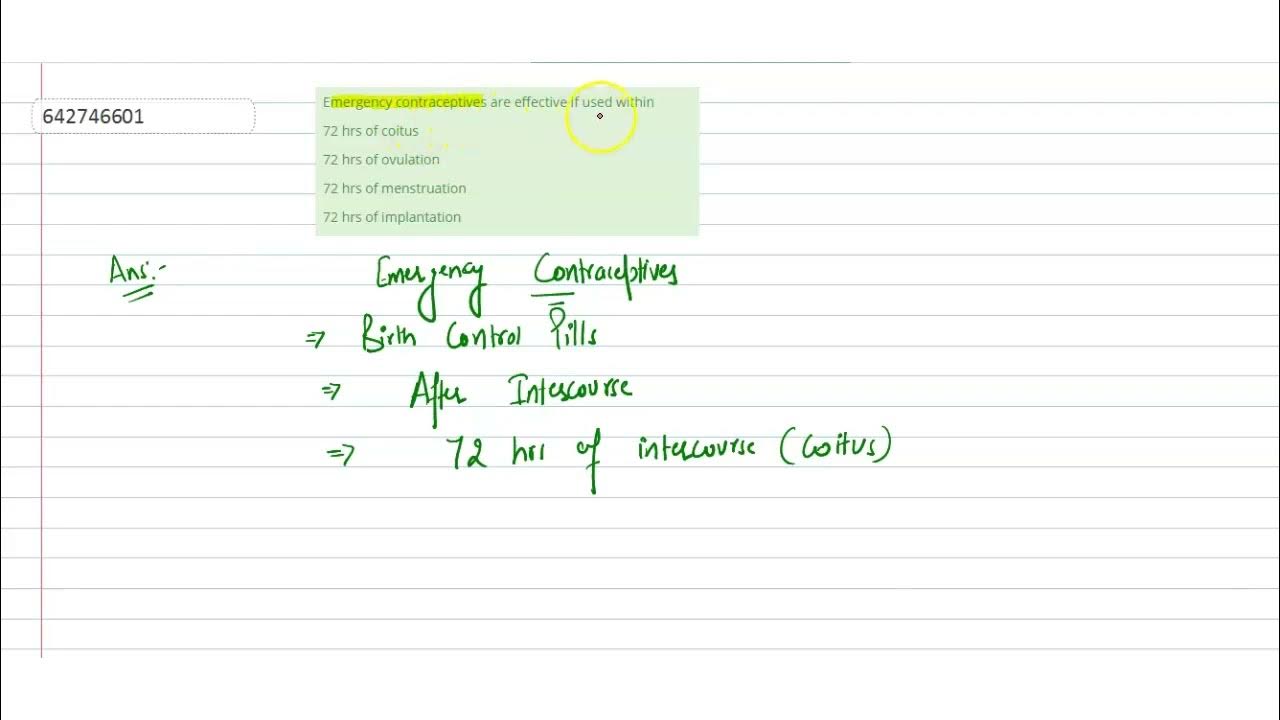 642746601
Emergency contraceptives are effective if used within
72 hrs of coitus
72 hrs of ovulation
72 hrs of menstruation
72 hrs of implantation
Ans:-
Emergency Contraceptives
⇒ Birth Control Pills
⇒ After Intercourse
⇒ 72 hrs of intercourse (Coitus)